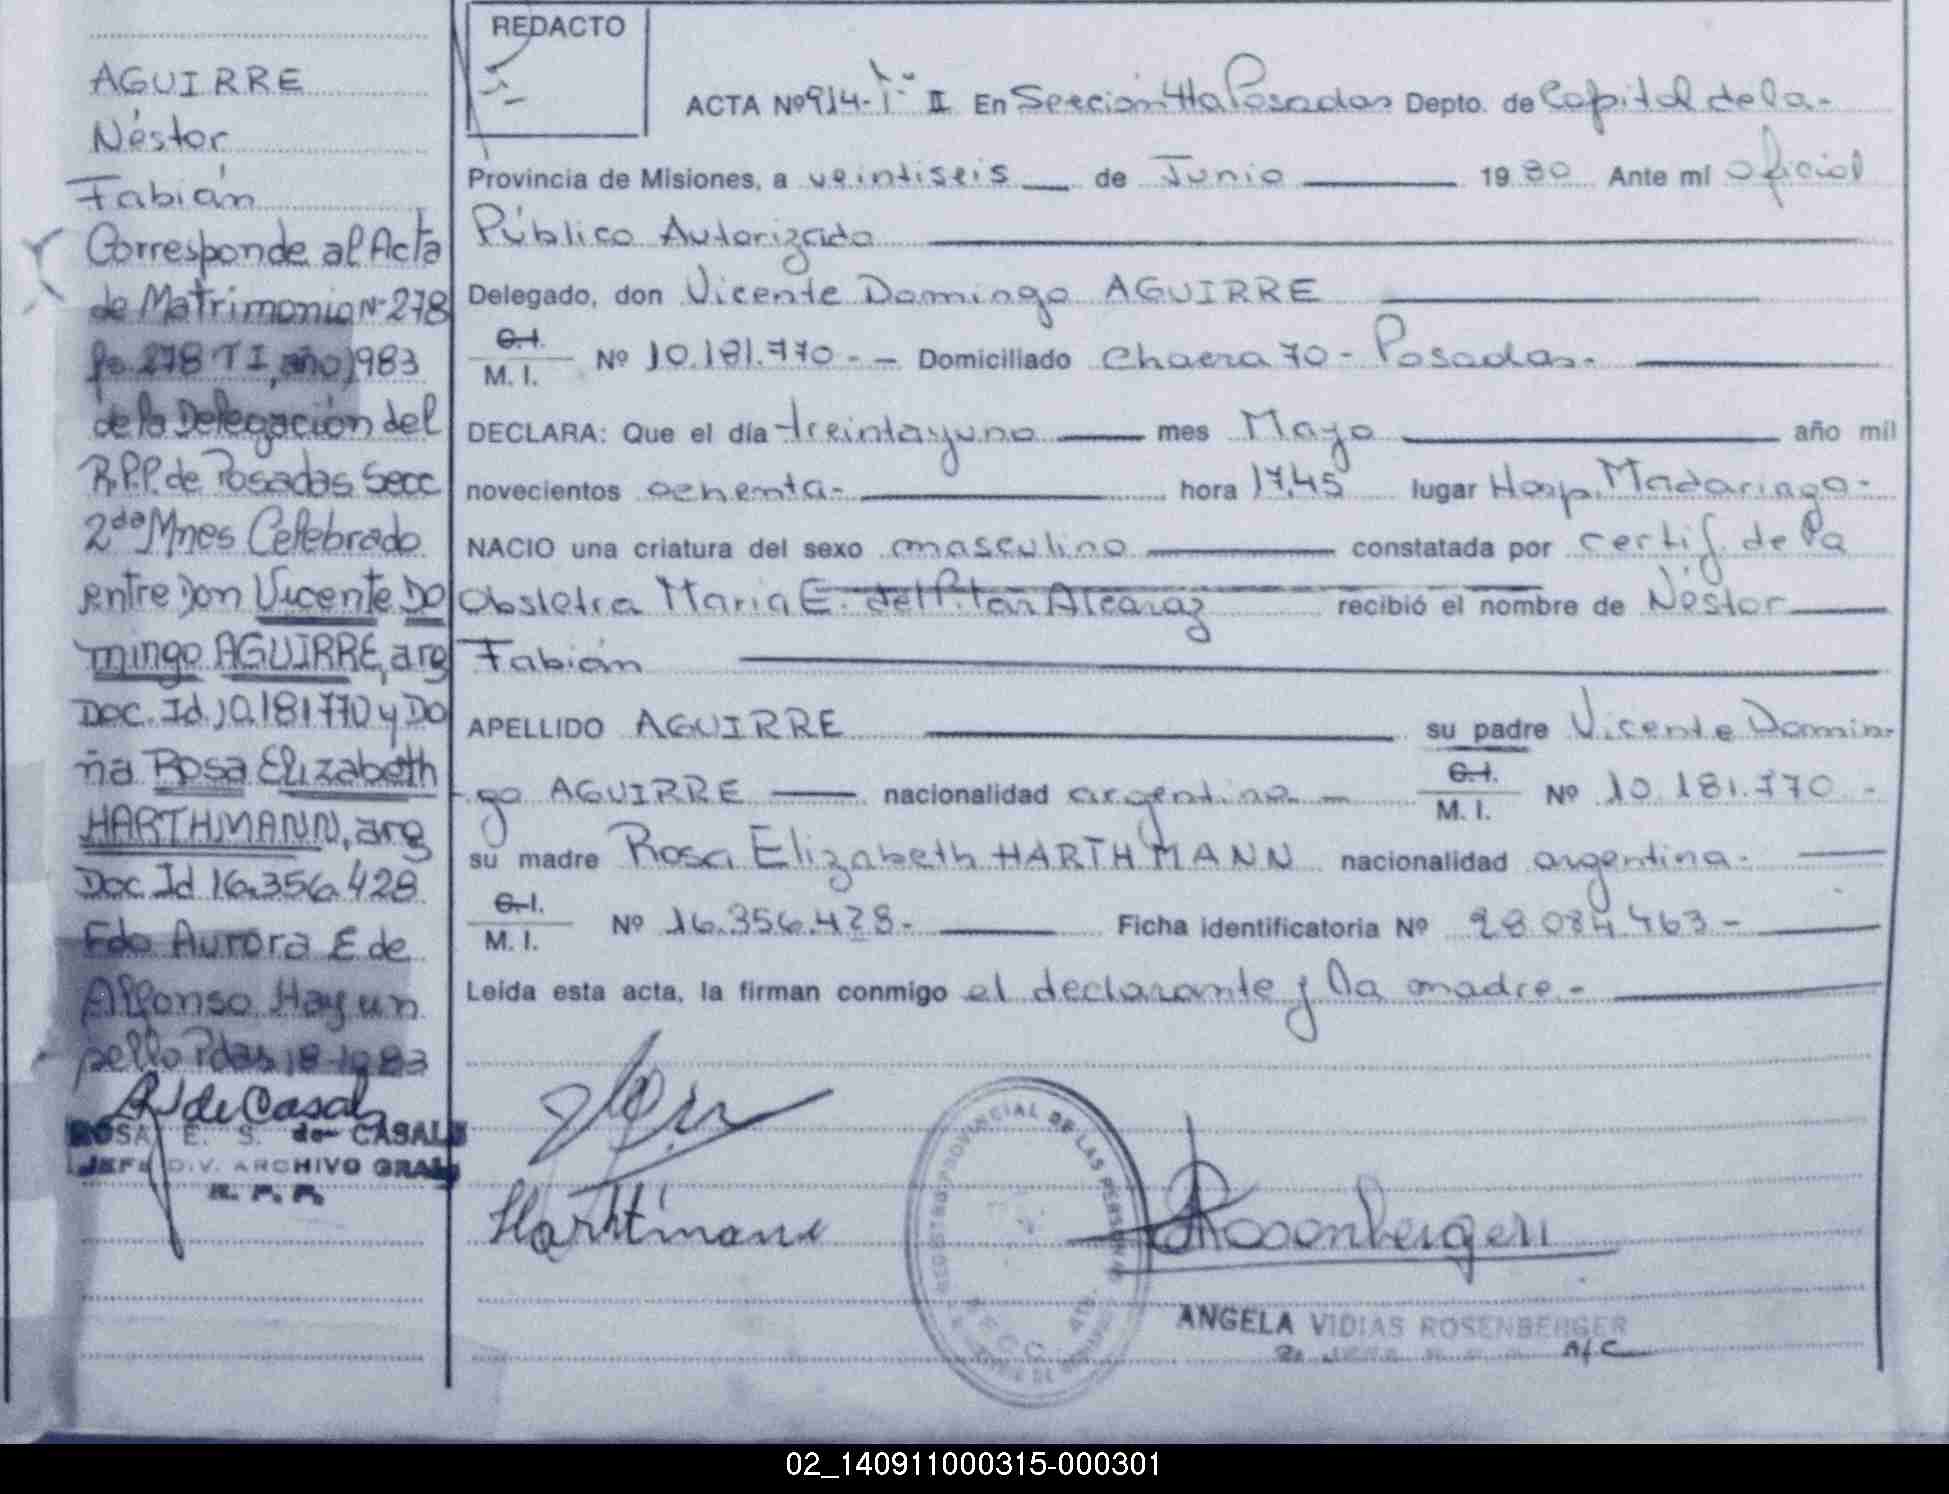 AGUIRRE
Néstor
Fabián
Corresponde al Acta
de Matrimonio Nº 278
fo. 278 T I, año 1983
de la Delegación del
R.P.P. de Posadas Secc
2da Mnes Celebrado
entre Don Vicente Do
mingo AGUIRRE, arg
Doc. Id. 10.181770 y Do
ña Rosa Elizabeth
HARTHMANN, arg
Doc Id 16.356.428
Fdo Aurora E de
Alfonso Hay un
sello Pdas 18-10-83
R S de Casals
ROSA E. S. de CASALS
JEFE DIV. ARCHIVO GRAL
R. P. P.
REDACTO
ACTA Nº 914-Tº II En Sección 4ta Posadas Depto. de Capital de la-
Provincia de Misiones, a veintiseis de Junio 19 80 Ante mí Oficial
Público Autorizado
Delegado, don Vicente Domingo AGUIRRE
C.I.
M. I. Nº 10.181.770.- Domiciliado Chacra 70- Posadas.
DECLARA: Que el día treintayuno mes Mayo año mil
novecientos ochenta- hora 17,45 lugar Hosp. Madariaga-
NACIO una criatura del sexo masculino constatada por certif. de la
Obstetra Maria E. del Pilar Alcaraz recibió el nombre de Néstor
Fabián
APELLIDO AGUIRRE su padre Vicente Domin-
go AGUIRRE nacionalidad argentina C.I. M. I. Nº 10.181.770-
su madre Rosa Elizabeth HARTHMANN nacionalidad argentina.
C.I.
M. I. Nº 16.356.428- Ficha identificatoria Nº 28.084.463-
Leída esta acta, la firman conmigo el declarante y la madre.-
Harthmann
REGISTRO PROVINCIAL DE LAS PERSONAS
Rosenberger
ANGELA VIDIAS ROSENBERGER
A/C
02_140911000315-000301